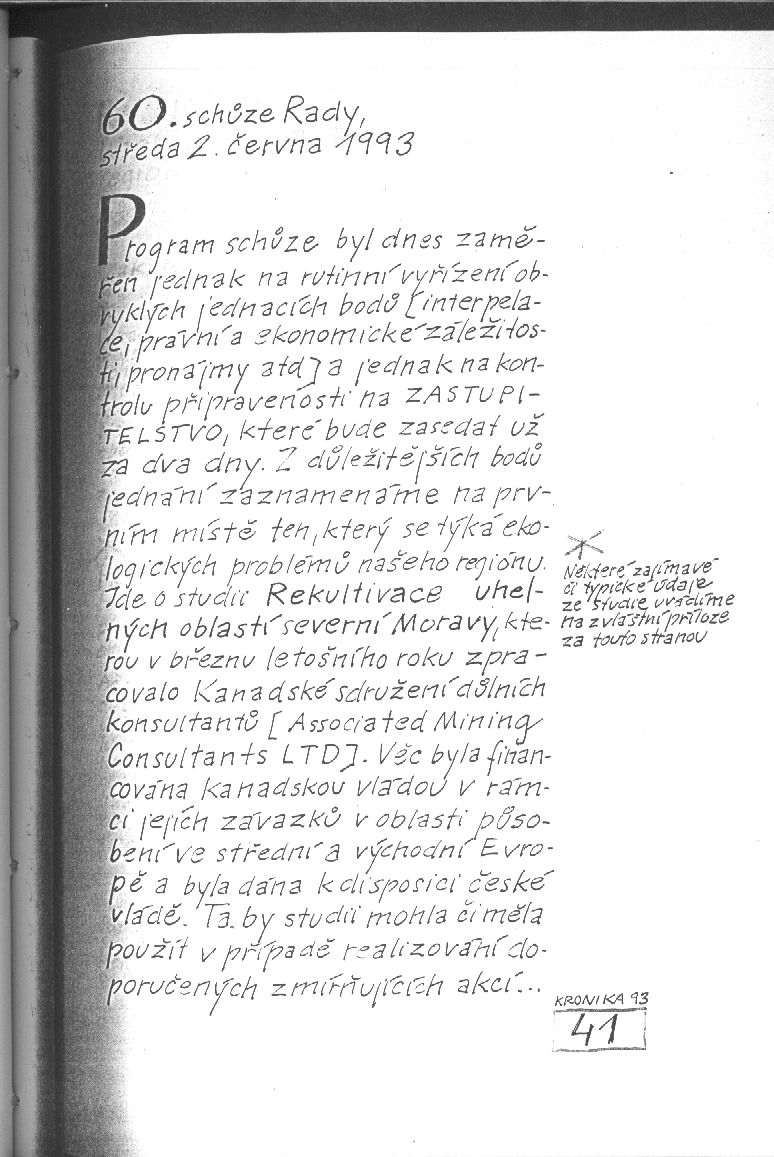 60. schůze Rady,
středa 2. června 1993
Program schůze byl dnes zamě-
řen jednak na rutinní vyřízení ob-
vyklých jednacích bodů [interpela-
ce, právní a ekonomické záležitos-
ti, pronájmy atd] a jednak na kon-
trolu připravenosti na ZASTUPI-
TELSTVO, které bude zasedat už
za dva dny. Z důležitějších bodů
jednání zaznamenáme na prv-
ním místě ten, který se týká eko-
logických problémů našeho regiónu.
Jde o studii Rekultivace uhel-
ných oblastí severní Moravy, kte-
rou v březnu letošního roku zpra-
covalo Kanadské sdružení důlních
konsultantů [Associated Mining
Consultants LTD]. Věc byla finan-
cována kanadskou vládou v rám-
ci jejích závazků v oblasti půso-
bení ve střední a východní Evro-
pě a byla dána k disposici české
vládě. Ta by studii mohla či měla
použít v případě realizování do-
poručených zmírňujících akcí...
*
Některé zajímavé
či typické údaje
ze studie uvádíme
na zvláštní příloze
za touto stranou
KRONIKA 93
41